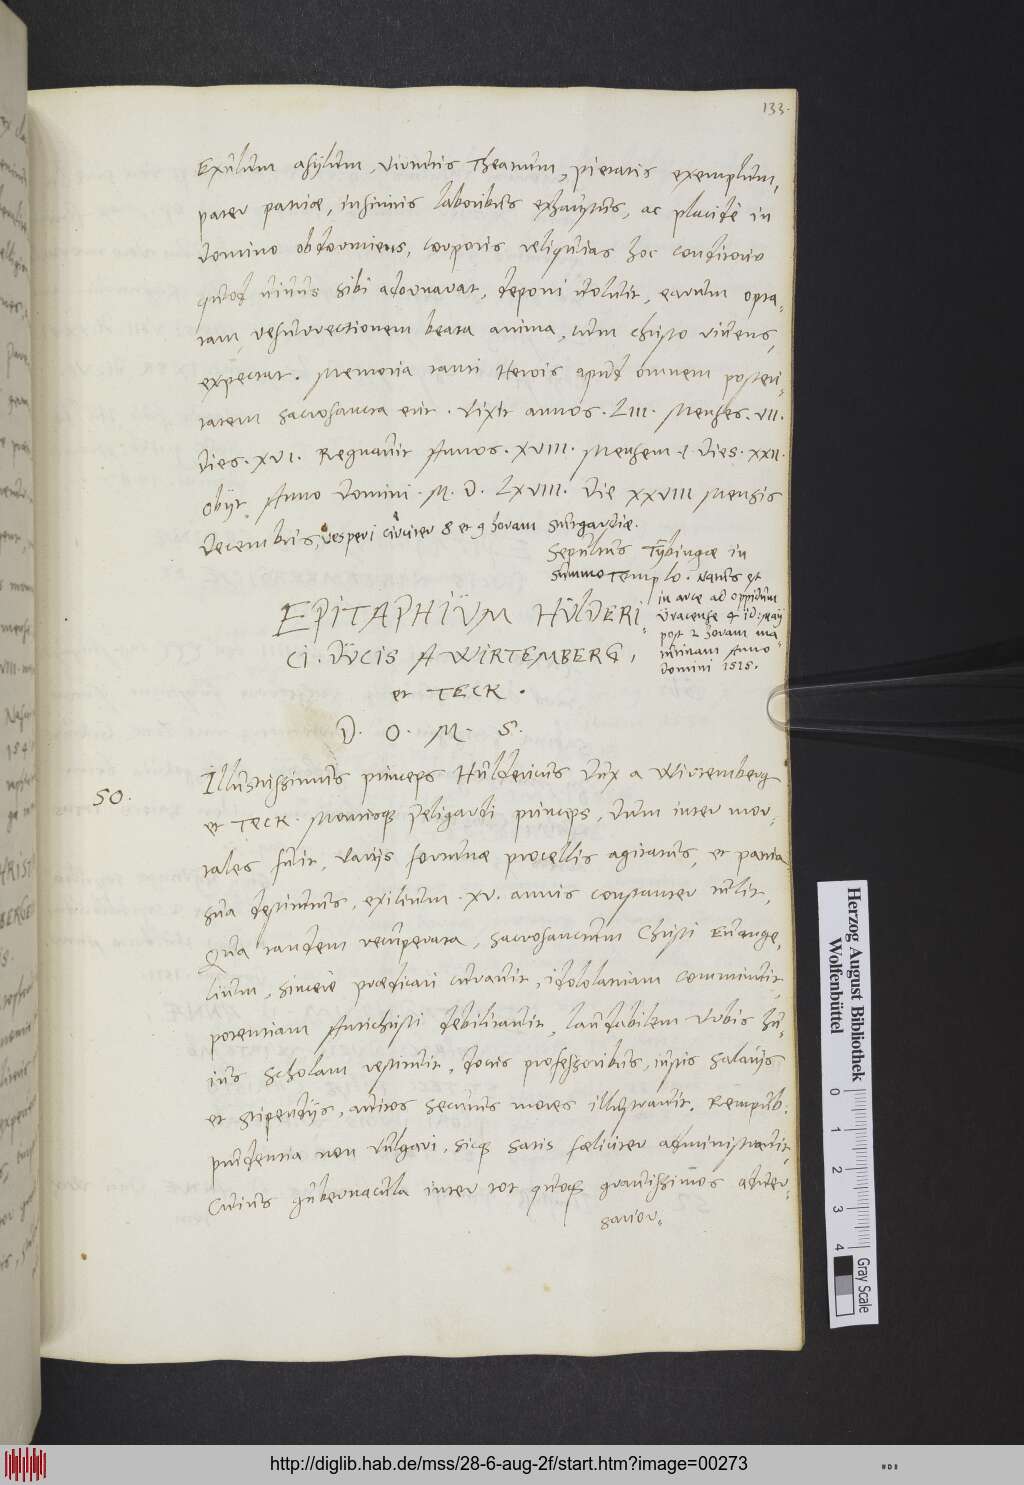 133.
Exulum asylum, virtutis Theatrum, pietatis exemplum,
pater patriæ, infinitis laboribus exhaustus, ac placidè in
domino obdormiens, corporis reliquias hoc conditorio
quod vivus sibi adornarat, deponi voluit, earum opta-
tam resurrectionem beata anima, cum christo vivens,
expectat. Memoria tanti Herois apud omnem posteri-
tatem sacrosancta erit. Vixit annos. LIII. Menses. VII.
dies. XVI. Regnavit Annos. XVIII. Mensem .I. dies. XXII.
obijt Anno domini. M. D. LXVIII. die XXVIII Mensis
decembris, vesperi circiter 8 et 9 horam Stutgardiæ.
Sepultus Tybingæ in
summo Templo. Natus et
in arce ad oppidum
Uracense 4 id: Maij
post 2 horam ma-
tutinam Anno
domini 1515.
EPITAPHIUM HULDERI-
CI. DUCIS A WIRTEMBERG,
et TECK.
D. O. M. S.
50.
Illustrissimus princeps Huldericus Dux a Wirtemberg
et TECK. Montisq peligardi princeps, dum inter mor-
tales fuit, varijs fortunæ procellis agitatus, et patria
sua destitutus, exilium. XV. annis constanter tulit,
Qua tandem recuperata, sacrosanctum Christi Euange-
lium, sincerè prædicari curavit, idololatriam comminuit,
potentiam Antichristi debilitavit, laudabilem Urbis hu-
ius Scholam restituit, doctis professoribus, iustis salarijs
et stipendijs, antiros secunis mores illustravit. Rempub:
prudentia non vulgari, sicq satis fœliciter administravit,
Cuius gubernacula inter tot quoq gravissimos adver-
sarior-
Herzog August Bibliothek
Wolfenbüttel
0 1 2 3 4
Gray Scale
http://diglib.hab.de/mss/28-6-aug-2f/start.htm?image=00273